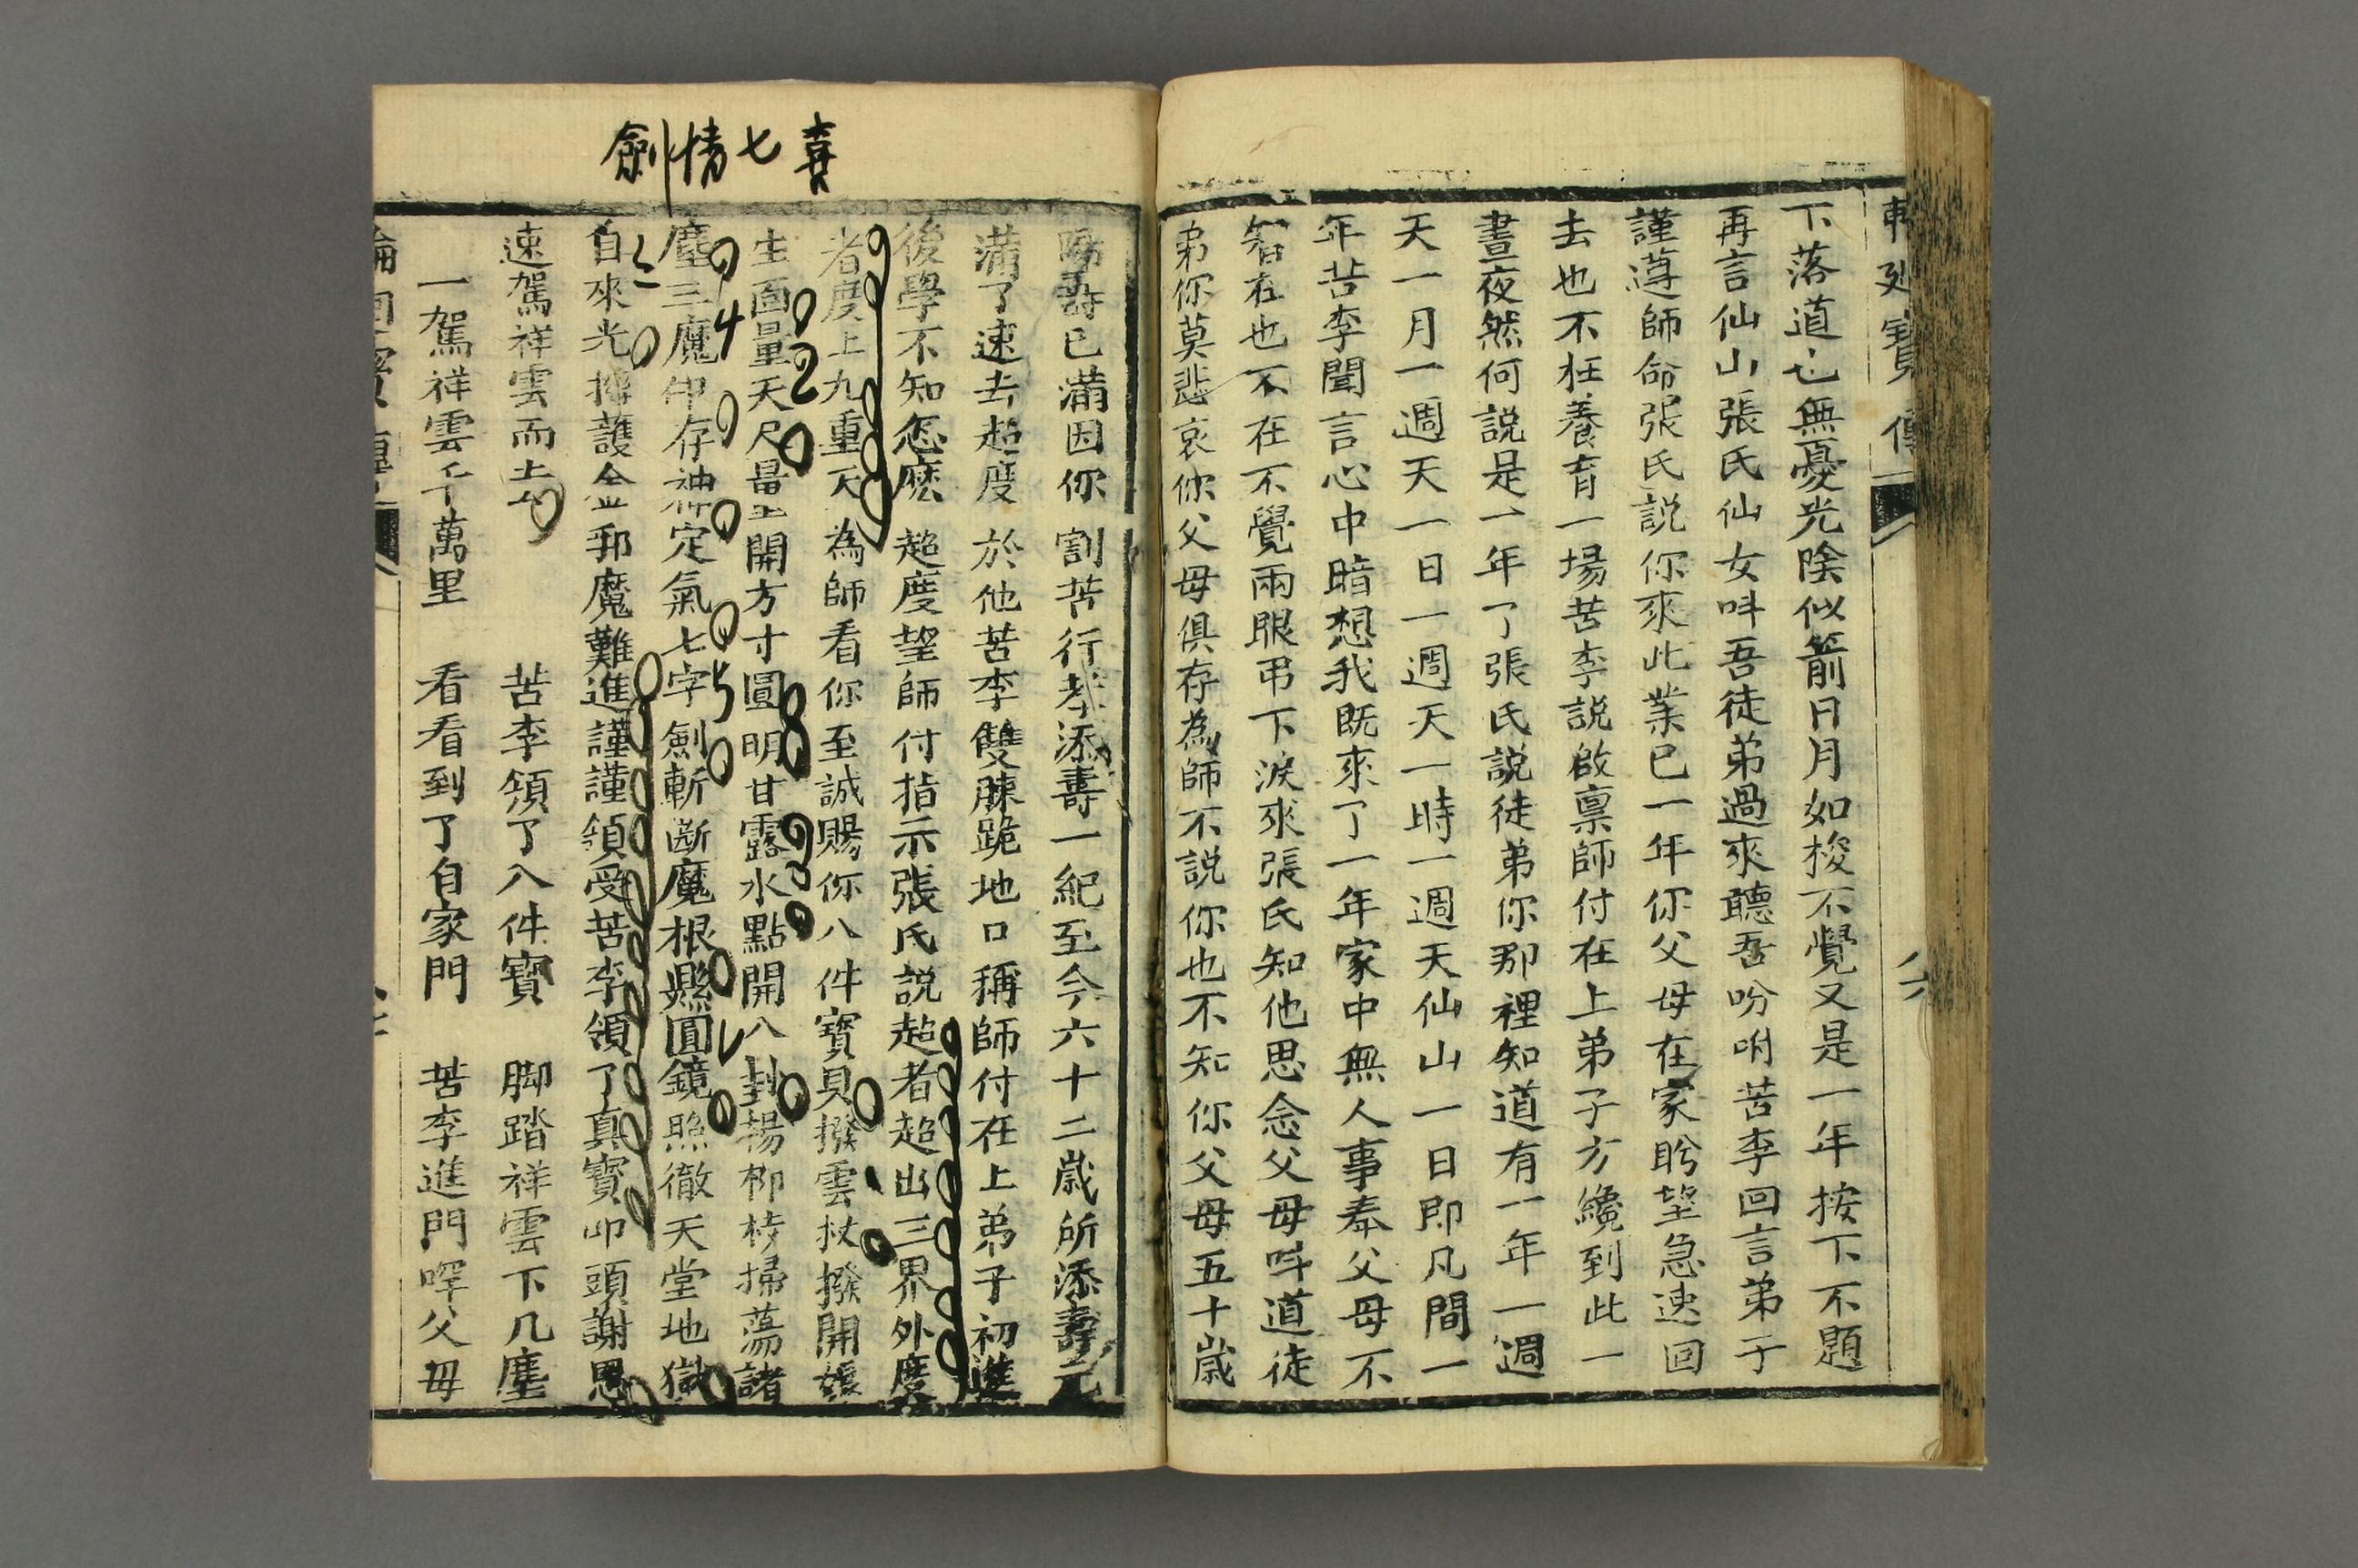 下落道也無憂光陰似箭日月如梭不覺又是一年按下不題
再言仙山張氏仙女呌吾徒弟過來聽吾吩咐苦李回言弟子
謹遵師命張氏説你來此業已一年你父母在家盻望急速回
去也不枉養育一場苦李説啟禀師付在上弟子方纔到此一
晝夜然何説是一年了張氏説徒弟你那裡知道有一年一週
天一月一週天一日一週天一時一週天仙山一日即凡間一
年苦李聞言心中暗想我既來了一年家中無人事奉父母不
知在也不在不覺兩眼弔下淚來張氏知他思念父母呌道徒
弟你莫悲哀你父母俱存為師不説你也不知你父母五十歲
陽壽已滿因你割苦行孝添壽一紀至今六十二歲所添壽元
滿了速去超度於他苦李雙膝跪地口稱師付在上弟子初進
後學不知怎麽超度望師付指示張氏説超者超出三界外度
者度上九重天為師看你至誠賜你八件寶貝撥雲杖撥開
生面量天尺量開方寸圓明甘露水點開八卦楊柳枝掃蕩諸
塵三魔印存神定氣七字劍斬斷魔根懸圓鏡照徹天堂地獄
自來光護金邪魔難進謹謹領受苦李領了真寶叩頭謝恩
速駕祥雲而去
苦李領了八件寶 脚踏祥雲下几塵
一駕祥雲千萬里 看看到了自家門 苦李進門喊父母
喜七情劍
八六